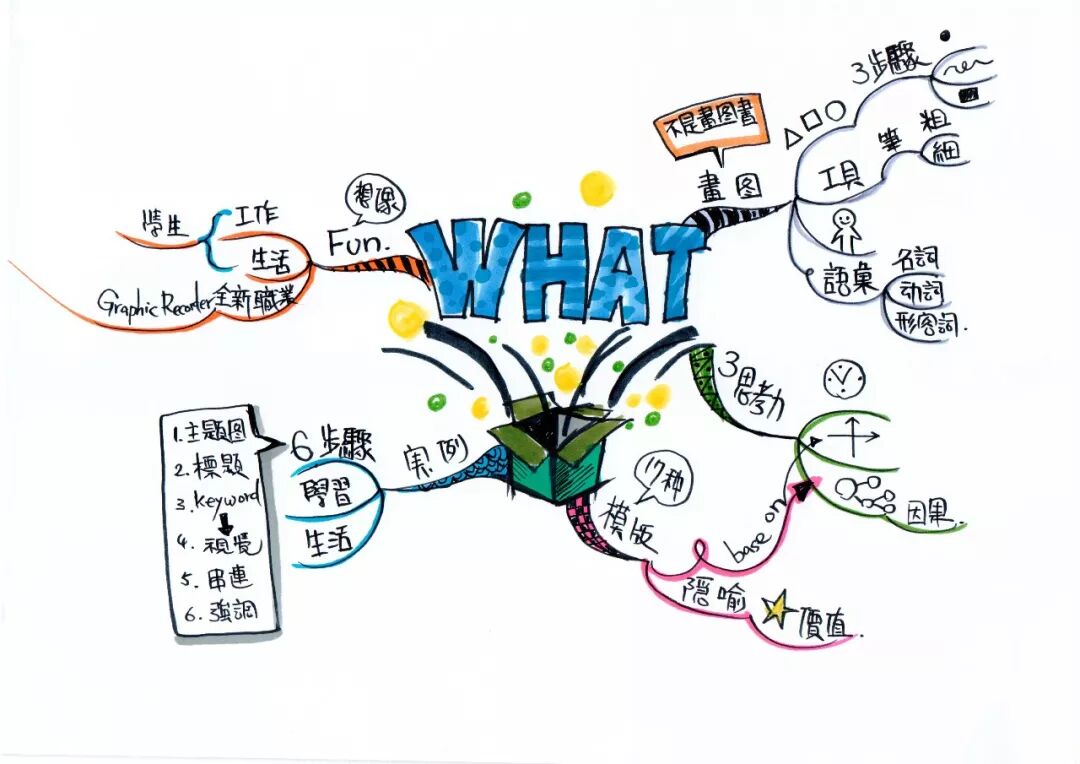 WHAT
不是畫图書
畫图
3步驟
工具
筆
粗
細
語彙
名詞
动詞
形容詞.
3思考力
因果..
17种
模版
base on
隱喻
價值.
実例
6步驟
學習
生活
1.主題图
2.標題
3.Keyword
4.視覺
5.串連
6.強調
想像
Fun.
工作
學生
生活
Graphic Recorder全新職業